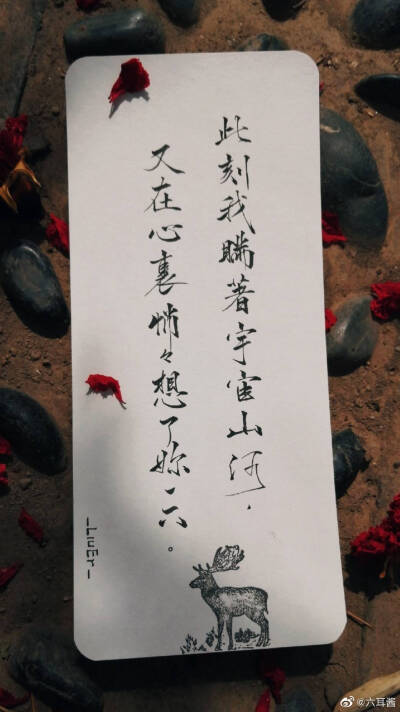 此刻我瞞著宇宙山河，
又在心裏悄々想了妳一下。
_LiuEr_
@六耳酱